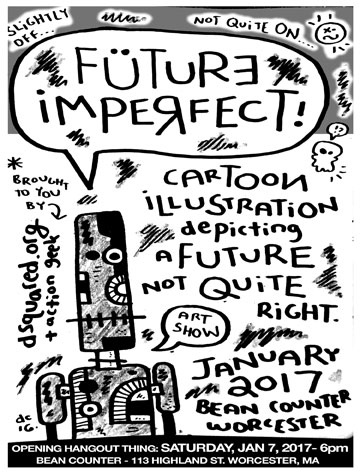 SLIGHTLY
OFF...
NOT QUITE ON....
FÜTURE
iMPERFECT!
!?
*
BROUGHT
TO YOU
BY
dsquared.org
+ action geek
CARTOON
iLLUSTRATION
depicting
A FUTURE
NOT QUITE
RIGHT.
ART
SHOW
JANUARY
2017
BEAN COUNTER
WORCESTER
ds
16.
OPENING HANGOUT THING: SATURDAY, JAN 7, 2017- 6pm
BEAN COUNTER - 113 HIGHLAND ST. WORCESTER, MA